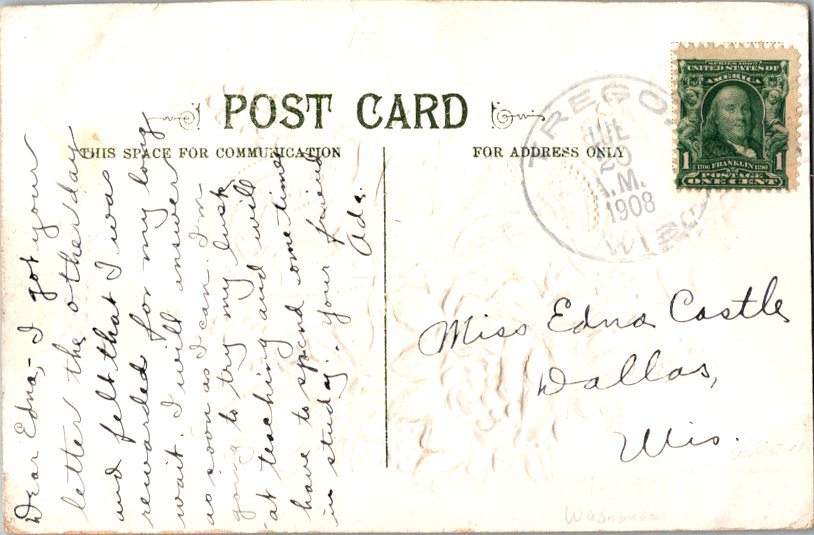 POST CARD
THIS SPACE FOR COMMUNICATION
FOR ADDRESS ONLY
Dear Edna,- I got your
letter the other day
and felt that I was
rewarded for my long
wait. I will answer
as soon as I can. I'm
going to try my luck
at teaching and will
have to spend some time
in study. Your friend
Ada.
TREGO
20
A.M.
1908
WIS
SERIES 1902
UNITED STATES OF
AMERICA
1 1706 FRANKLIN 1790 1
POSTAGE
ONE CENT
Miss Edna Castle
Dallas,
Wis.